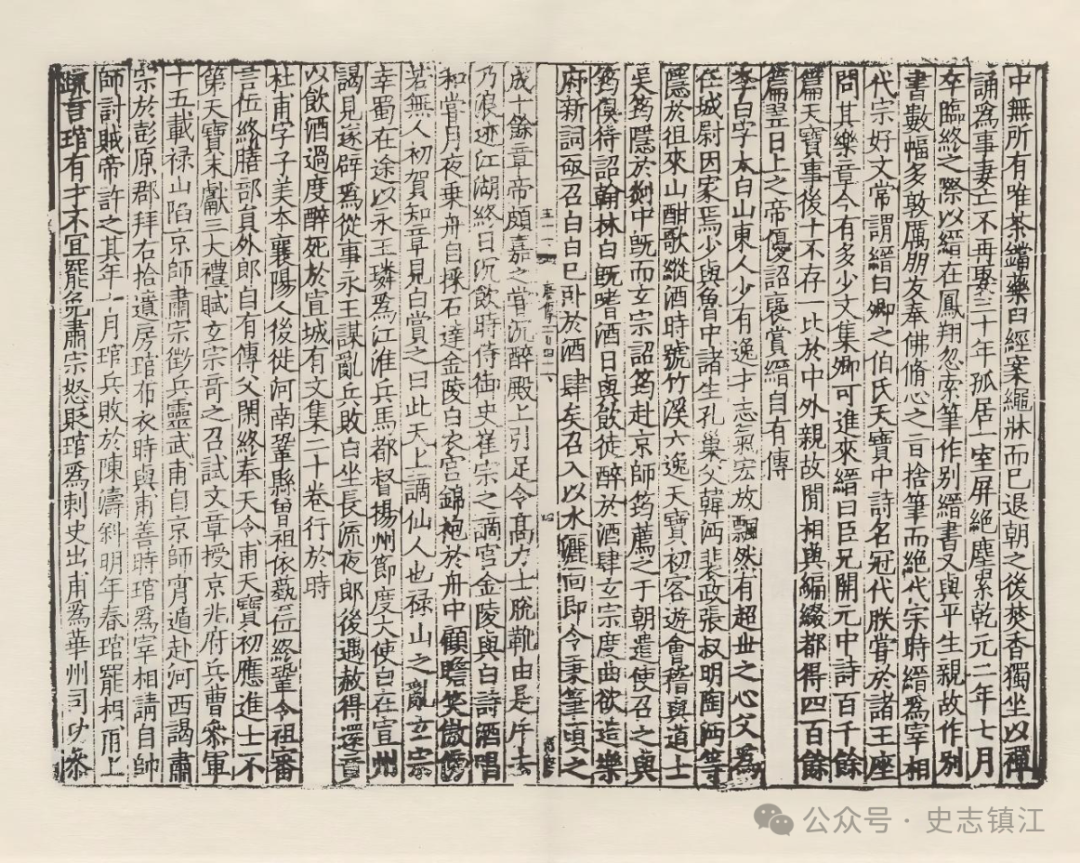 中無所有唯茶鐺藥臼經案繩牀而已退朝之後焚香獨坐以禪
誦爲事妻亡不再娶三十年孤居一室屏絕塵累乾元二年七月
卒臨終之際以縉在鳳翔忽索筆作别縉書又與平生親故作别
書數幅多敦厲朋友奉佛脩心之旨捨筆而絕代宗時縉爲宰相
代宗好文常謂縉曰卿之伯氏天寶中詩名冠代朕嘗於諸王座
問其樂章今有多少文集卿可進來縉曰臣兄開元中詩百千餘
篇天寶事後十不存一比於中外親故間相與編綴都得四百餘
篇翌日上之帝優詔襃賞縉自有傳
李白字太白山東人少有逸才志氣宏放飄然有超世之心父爲
任城尉因家焉少與魯中諸生孔巢父韓沔裴政張叔明陶沔等
隱於徂來山酣歌縱酒時號竹溪六逸天寶初客遊會稽與道士
吳筠隱於剡中旣而玄宗詔筠赴京師筠薦之于朝遣使召之與
筠俱待詔翰林白旣嗜酒日與飲徒醉於酒肆玄宗度曲欲造樂
府新詞亟召白白已卧於酒肆矣召入以水灑面即令秉筆頃之
成十餘章帝頗嘉之嘗沉醉殿上引足令髙力士脫鞾由是斥去
乃浪迹江湖終日沉飲時侍御史祥宗之謫官金陵與白詩酒唱
和嘗月夜乗舟自採石達金陵白衣宮錦袍於舟中顧瞻笑傲傍
若無人初賀知章見白賞之曰此天上謫仙人也禄山之亂玄宗
幸蜀在途以永王璘爲江淮兵馬都督揚州節度大使白在宣州
謁見遂辟爲從事永王謀亂兵敗白坐長流夜郎後遇赦得還竟
以飲酒過度醉死於宣城有文集二十卷行於時
杜甫字子美本襄陽人後徙河南鞏縣曽祖依藝位終鞏令祖審
言位終膳部員外郎自有傳父閑終奉天令甫天寶初應進士不
第天寶末獻三大禮賦玄宗奇之召試文章授京兆府兵曹叅軍
十五載禄山陷京師肅宗徴兵靈武甫自京師宵遁赴河西謁肅
宗於彭原郡拜右拾遺房琯布衣時與甫善時琯爲宰相請自帥
師討賊帝許之其年十月琯兵敗於陳濤斜明年春琯罷相甫上
疏言琯有才不宜罷免肅宗怒貶琯爲刺史出甫爲華州司功叅
公众号 · 史志镇江